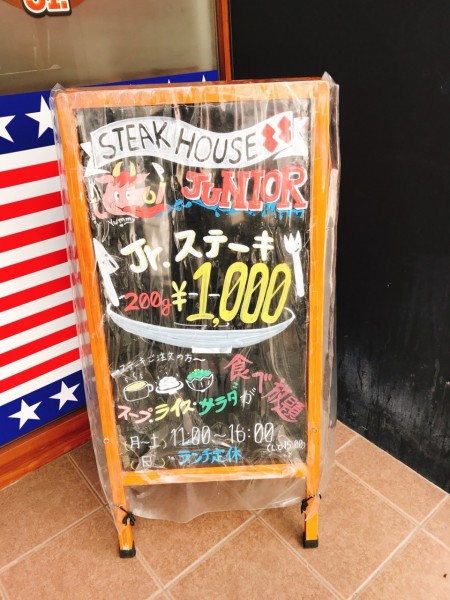 Jr.
STEAK HOUSE
JUNIOR
Yummy
Jr.ステーキ
200g ¥1,000
～ステーキご注文の方～
スープ・ライス・サラダが
食べ放題
月～土 11:00～16:00
(L.O 15:00)
日 ランチ定休